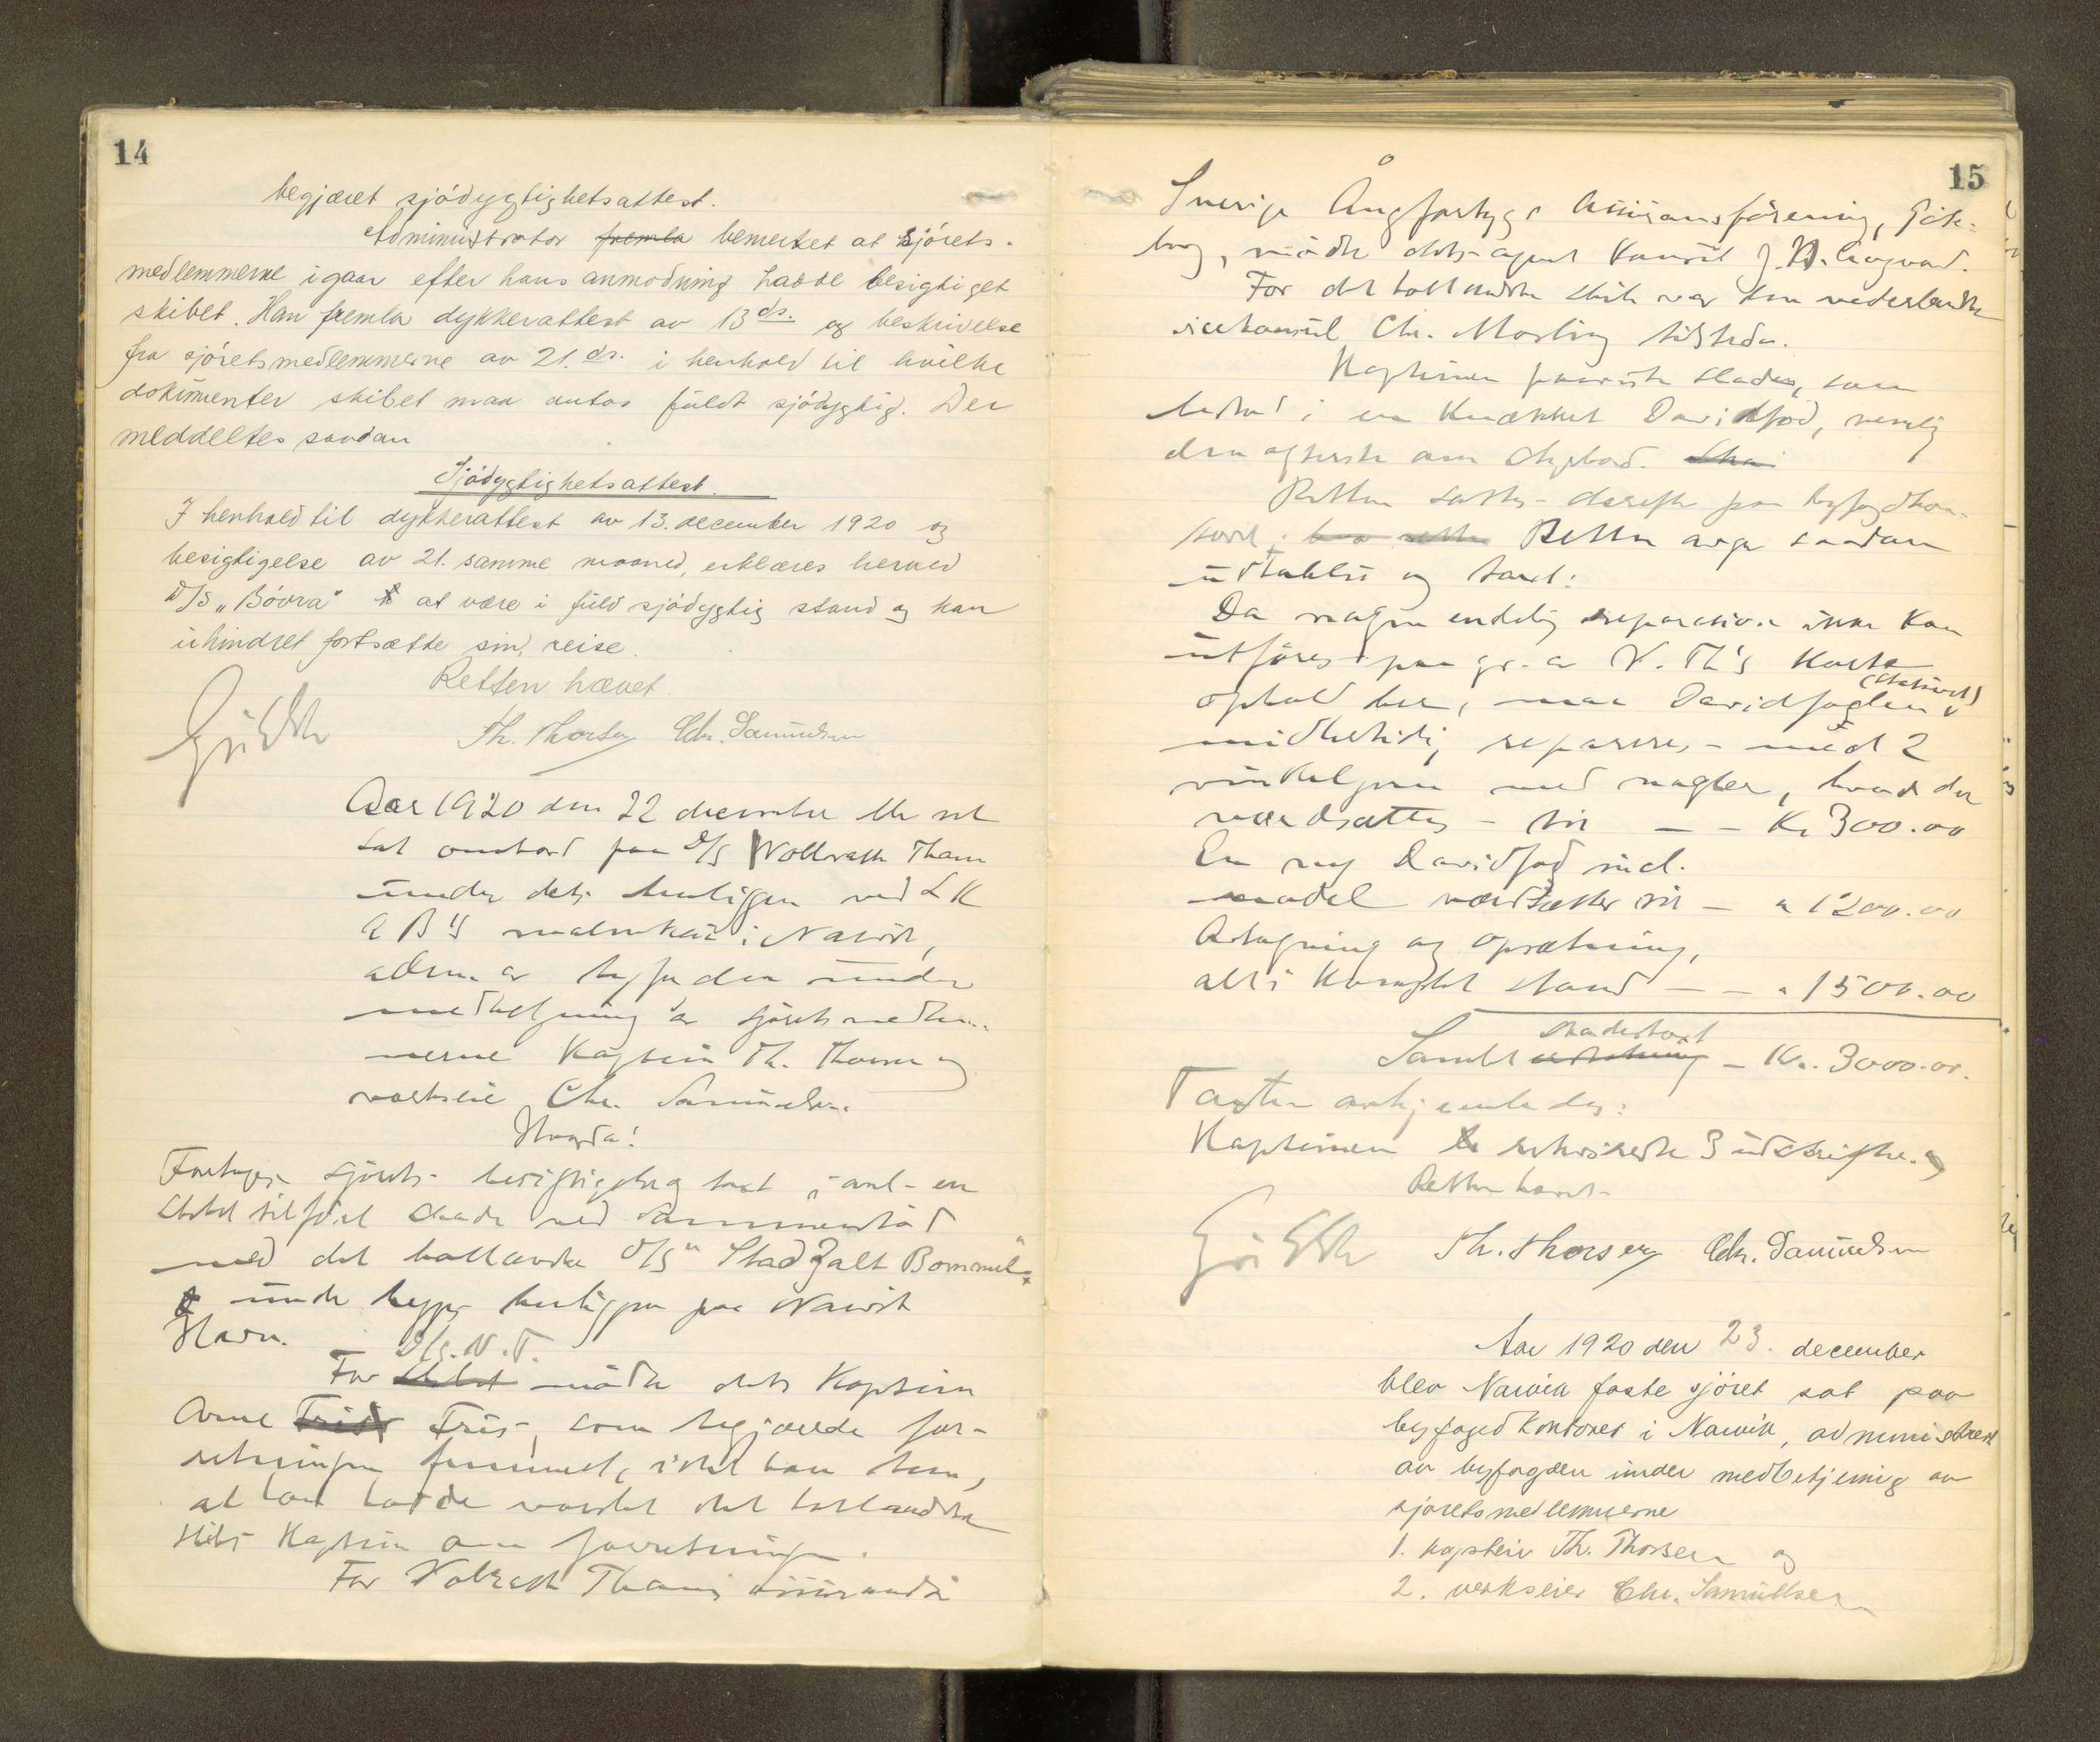 14
begjæret sjødygtighetsattest.
Administrator fremla bemerket at sjørets-
medlemmerne igaar efter hans anmodning hadde besigtiget
skibet. Han fremla dykkerattest av 13 ds. og beskrivelse
fra sjøretsmedlemmerne av 21. ds. i henhold til hvilke
dokumenter skibet maa antas fuldt sjødygtig. Der
meddeltes saadan
Sjødygtighetsattest.
I henhold til dykkerattest av 13. december 1920 og
besigtigelse av 21. samme maaned, erklæres herved
D/S "Bøvra" at være i fuld sjødygtig stand og kan
uhindret fortsætte sin reise.
Retten hævet
Th. Thorsen Chr. Samuelsen
Aar 1920 den 22 december ble ret
sat ombord paa D/S Vollrath Tham
under dets henliggen ved L K
A B's malmkai i Narvik,
adm. av byfogden under
medbetjening av sjøretsmedlem-
merne kaptein Th. Thorsen og
verkseier Chr. Samuelsen
Hvorda!
Foretoges sjørets- besigtigelse i anl- en
skibet tilføiet skade ved sammenstød
med det hollandske D/S "Stad Zalt Bommel"
under begges henliggen paa Narvik
Havn.
D/S. V. T.
For skibet mødte dets Kaptein
Arne Friis, som begjærte for-
retningen fremmet, idet han bem,
at han hadde varslet det hollandske
skibs Kaptein om forretningen.
For Volrath Thams assurandør
15
Sverige Ångfartygs Assuransförening, Göte-
borg, mødte dets agent Konsul J. N. Aagaard.
For det hollandske skib var den nederlandske
vicekonsul Chr. Mosling tilstede.
Kapteinen paaviste skaden, som
bestod i en knækket Davidfod, nemlig
den agterste om styrbord.
Retten sattes derefter paa byfogdkon-
toret. Retten avga saadan
uttalelse og taxt:
Da nogen endelig reparation ikke kan
utføres paa gr. av V. Th's korte
ophold her, maa Davidfoden
midlertidig repareres med 2
vinkeljern med nagler, hvad der
værdsættes til – – Kr 300.00
En ny Davidfod incl.
model værdsættes til – " 1200.00
Avtagning og opsætning,
alt i komplet stand – – " 1500.00
Samlet skadestaxt – Kr. 3000.00.
Taxten avhjemledes:
Kapteinen rekvirerte 3 utskrifter.
Retten hævet
Th. Thorsen Chr. Samuelsen
Aar 1920 den 23. december
blev Narvik faste sjøret sat paa
byfogedkontoret i Narvik, administrert
av byfogden under medbetjening av
sjøretsmedlemmerne
1. kaptein Th. Thorsen og
2. verkseier Chr. Samuelsen